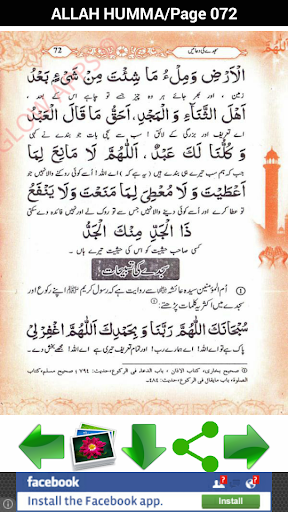 ALLAH HUMMA/Page 072
72
سجدے کی دعائیں
الْاَرْضِ وَمِلْءَ مَا شِئْتَ مِنْ شَیْءٍ بَعْدُ
زمین ، اور بھر جائے ہر وہ چیز جسے تو چاہے اس کے بعد ،
اَهْلَ الثَّنَآءِ وَ الْمَجْدِ، اَحَقُّ مَا قَالَ الْعَبْدُ
اے تعریف اور بزرگی کے لائق ! سب سے سچی بات جو بندے نے کہی
وَ كُلُّنَا لَكَ عَبْدٌ، اَللّٰهُمَّ لَا مَانِعَ لِمَا
جب کہ ہم سب تیرے ہی بندے ہیں (یہ ہے کہ) اے اللہ! اُسے کوئی روکنے والا نہیں جو
اَعْطَيْتَ وَ لَا مُعْطِيَ لِمَا مَنَعْتَ وَلَا يَنْفَعُ
تو عطا کرے اور اُسے کوئی دینے والا نہیں جس سے تو روک لے اور نہیں فائدہ دے سکتی
ذَا الْجَدِّ مِنْكَ الْجَدُّ
کسی صاحب حیثیت کو اس کی حیثیت تیرے ہاں ۔
سجدے کی تسبیحات
① اُم المؤمنین سیدہ عائشہ سے روایت ہے کہ رسول کریم ﷺ اپنے رکوع اور
سجدے میں اکثر یہ کلمات پڑھتے:
سُبْحَانَكَ اللّٰهُمَّ رَبَّنَا وَ بِحَمْدِكَ اَللّٰهُمَّ اغْفِرْ لِيْ
پاک ہے تو اے اللہ! اے ہمارے رب! اور تمام تعریف تیری ہے اے اللہ! مجھے بخش دے ۔
① صحیح بخاری، کتاب الاذان ، باب الدعاء فی الركوع، حدیث: ٧٩٤ صحیح مسلم، کتاب
الصلوة، باب مایقال فی الركوع، حدیث: ٤٨٤
facebook
2
8
Install the Facebook app.
Install